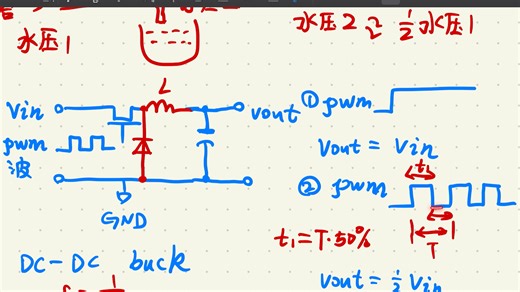 水压1
水压2 ≈ 1/2 水压1
L
Vin
vout
pwm
波
GND
DC-DC buck
① pwm
Vout = Vin
② pwm
t1
T
t1 = T·50%
Vout = 1/2 Vin